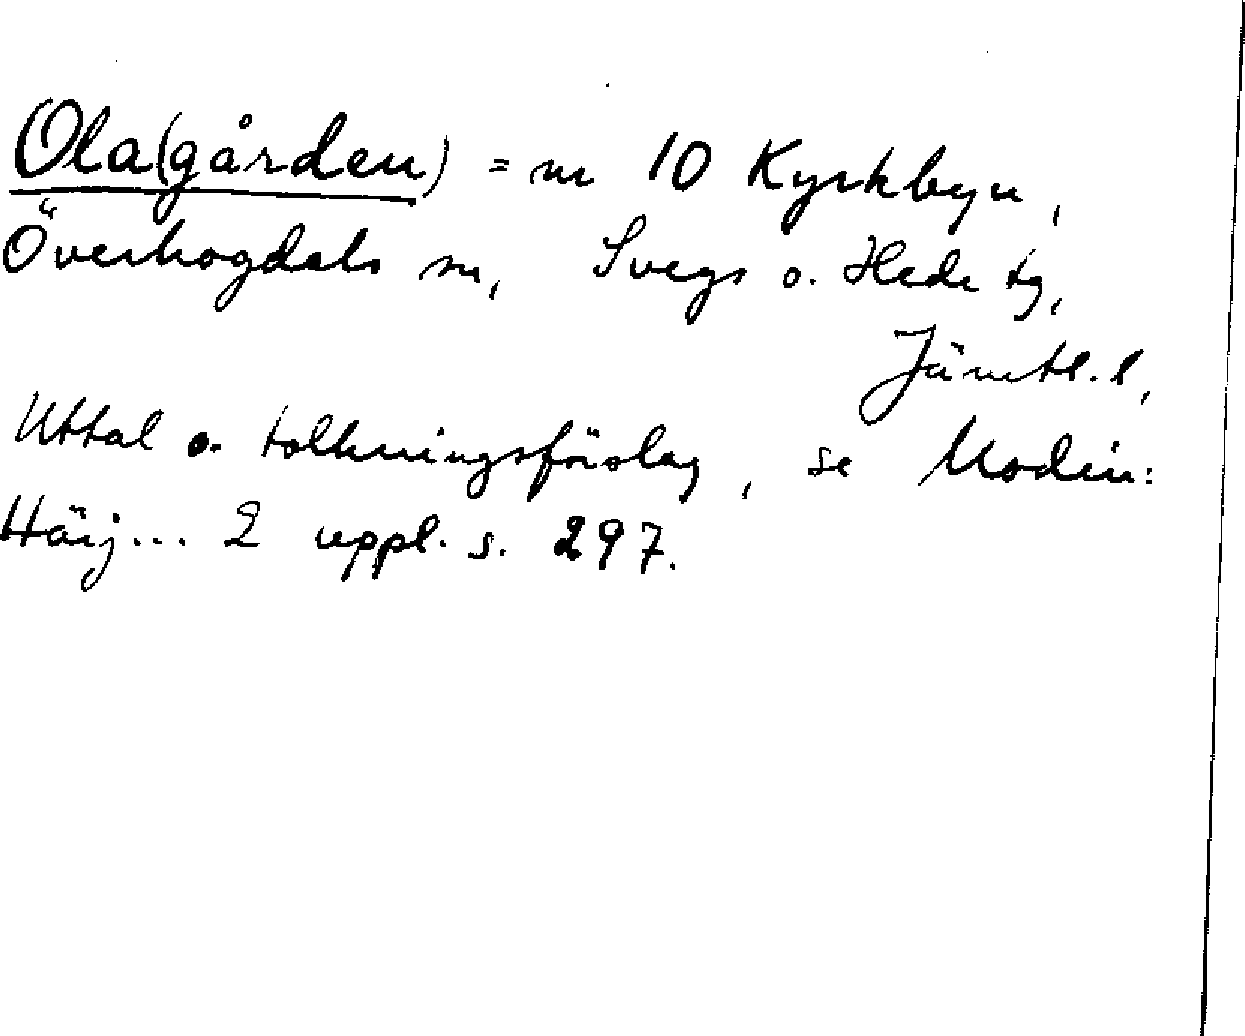 Ola(gården) = nr 10 Kyrkbyn,
Överhogdals sn, Svegs o. Hede tg,
Jämtl. l,
Uttal o. tolkningsförslag, se Modin:
Härj... 2 uppl. s. 297.